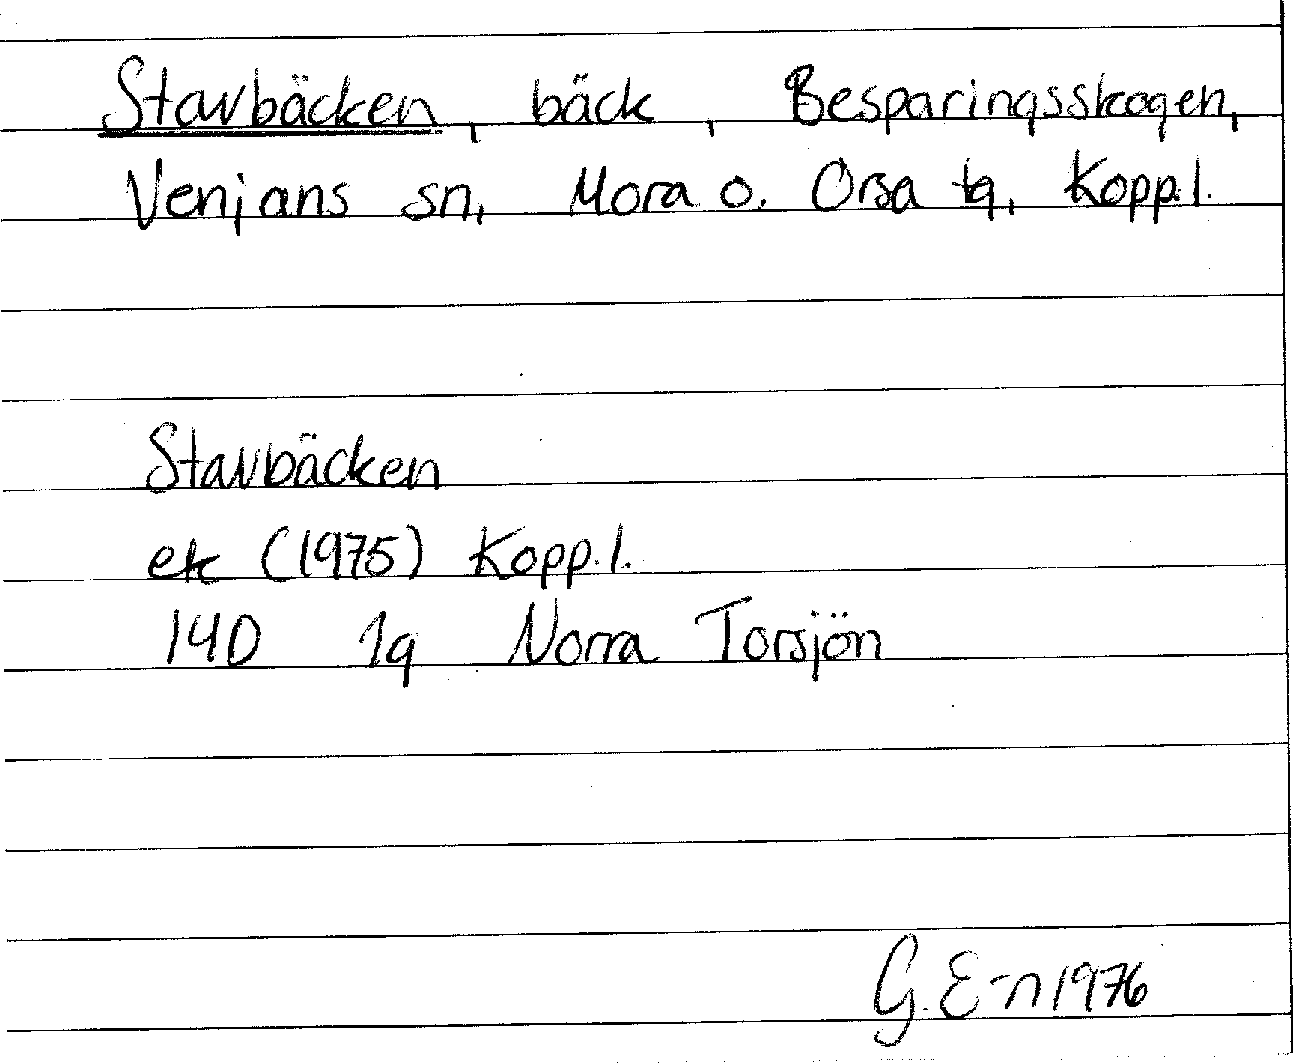 Stavbäcken, bäck, Besparingsskogen,
Venjans sn, Mora o. Orsa tg, Kopp.l.
Stavbäcken
ek (1975) Kopp.l.
14D 1g Norra Torsjön
G. E-n 1976